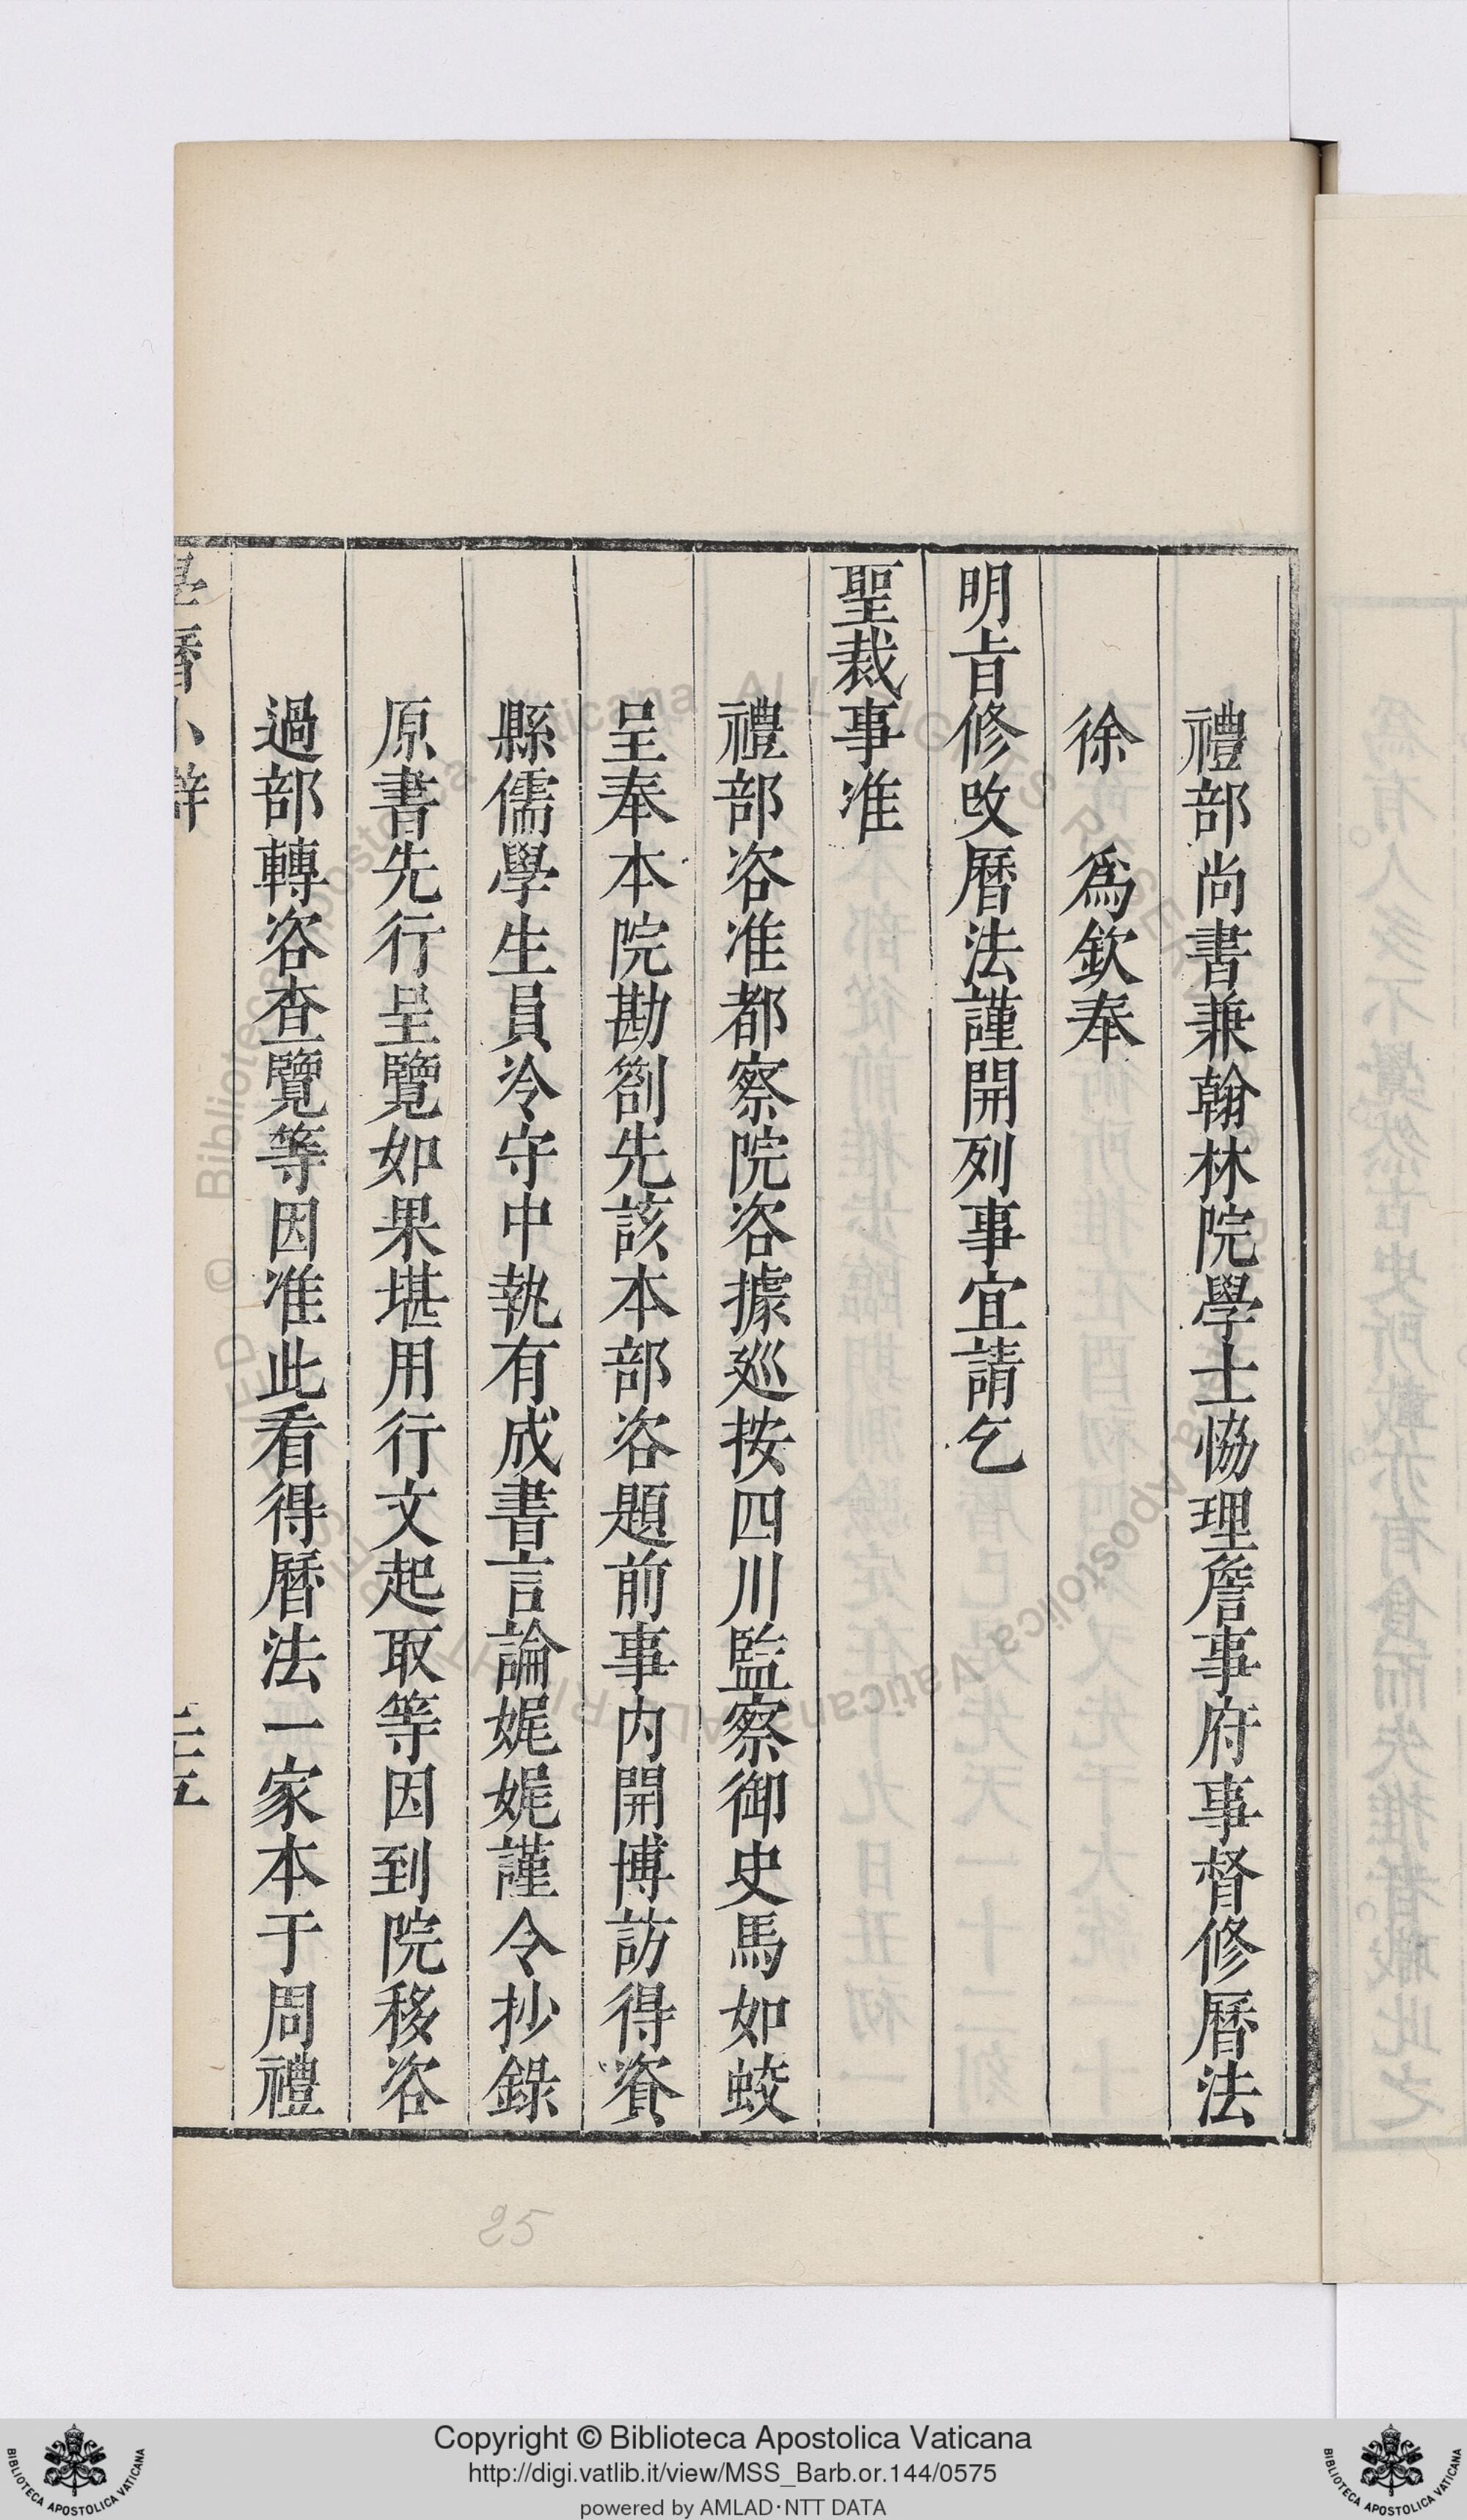 禮部尚書兼翰林院學士恊理詹事府事督修曆法
徐　爲欽奉
明旨修攺曆法謹開列事宜請乞
聖裁事准
禮部咨准都察院咨據廵按四川監察御史馬如蛟
呈奉本院勘劄先該本部咨題前事内開博訪得資
縣儒學生員冷守中執有成書言論娓娓謹令抄錄
原書先行呈覽如果堪用行文起取等因到院移咨
過部轉咨查覽等因准此看得曆法一家本于周禮
學曆小辯
25
Copyright © Biblioteca Apostolica Vaticana
http://digi.vatlib.it/view/MSS_Barb.or.144/0575
powered by AMLAD·NTT DATA
BIBLIOTECA APOSTOLICA VATICANA
BIBLIOTECA APOSTOLICA VATICANA